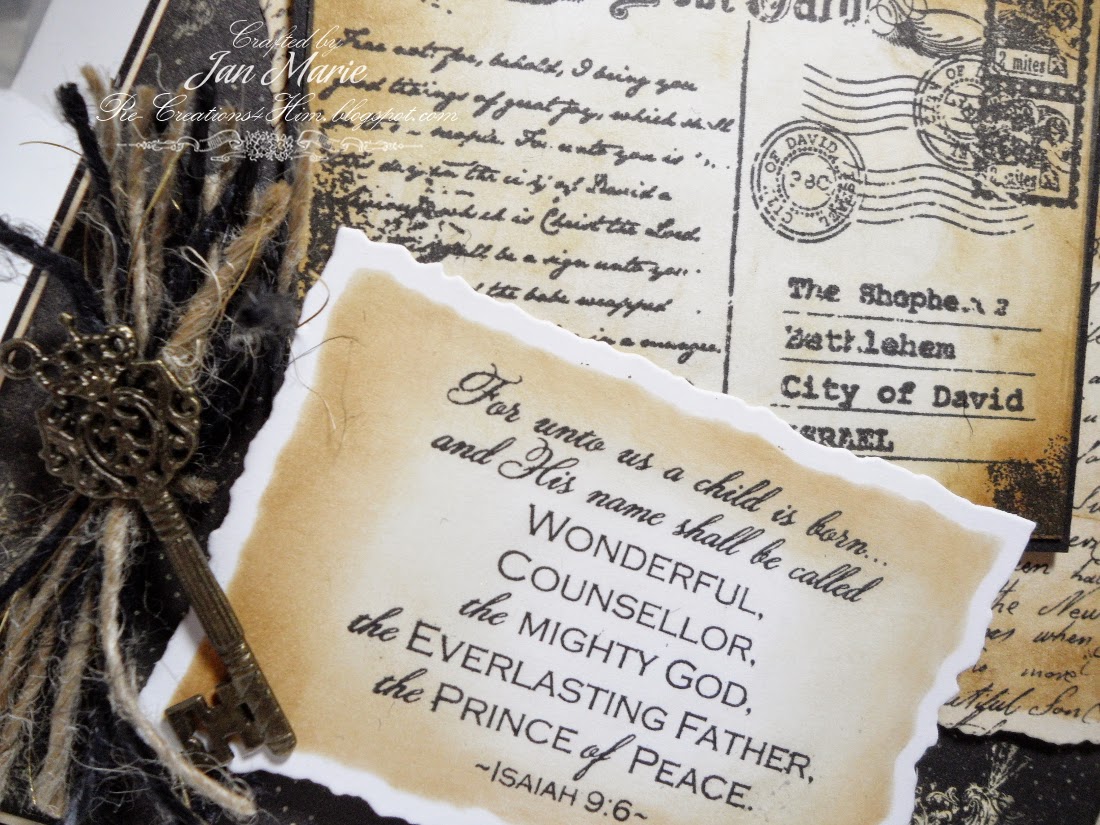 Crafted by
Jan Marie
Re-Creations4Him.blogspot.com
Fear not for, behold, I bring you
good tidings of great joy, which shall
people. For unto you is
day in the city of David a
which is Christ the Lord.
shall be a sign unto you
the babe wrapped
in a manger.
CITY OF DAVID
ISRAEL
2 miles
2 miles
The Shopherd
Bethlehem
City of David
ISRAEL
For unto us a child is born...
and His name shall be called
WONDERFUL,
COUNSELLOR,
the MIGHTY GOD,
the EVERLASTING FATHER,
the PRINCE of PEACE.
~ISAIAH 9:6~
the New
when
more